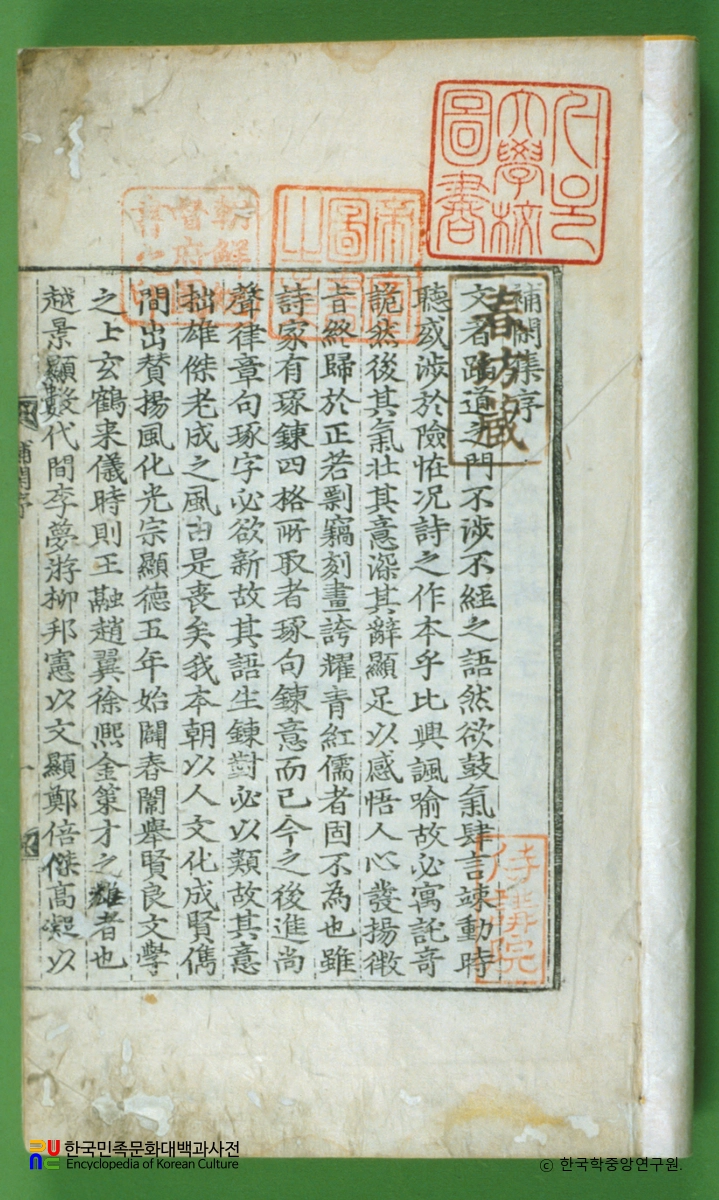 서울大學校圖書
帝室圖書之章
朝鮮總督府
春坊藏
補閑集序
文者蹈道之門不涉不經之語然欲鼓氣肆言竦動時
聽或涉於險怪况詩之作本乎比興諷喻故必寓託奇
詭然後其氣壯其意深其辭顯足以感悟人心發揚微
旨終歸於正若剽竊刻畫誇耀青紅儒者固不為也雖
詩家有琢鍊四格所取者琢句鍊意而已今之後進尚
聲律章句琢字必欲新故其語生鍊對必以類故其意
拙雄傑老成之風由是喪矣我本朝以人文化成賢儁
間出賛揚風化光宗顯德五年始闢春闈舉賢良文學
之士玄鶴来儀時則王融趙翼徐熙金策才之雄者也
越景顯數代間李夢游柳邦憲以文顯鄭倍傑高凝以
補閑序
一
侍講院
한국민족문화대백과사전
Encyclopedia of Korean Culture
© 한국학중앙연구원.